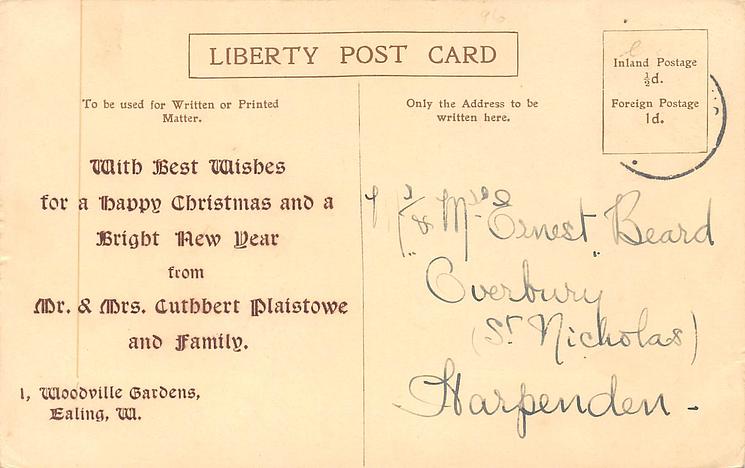 LIBERTY POST CARD
Inland Postage
½d.
Foreign Postage
1d.
To be used for Written or Printed
Matter.
Only the Address to be
written here.
With Best Wishes
for a Happy Christmas and a
Bright New Year
from
Mr. & Mrs. Cuthbert Plaistowe
and Family.
1, Woodville Gardens,
Ealing, W.
& Mrs Ernest Beard
Overbury
(St Nicholas)
Harpenden -